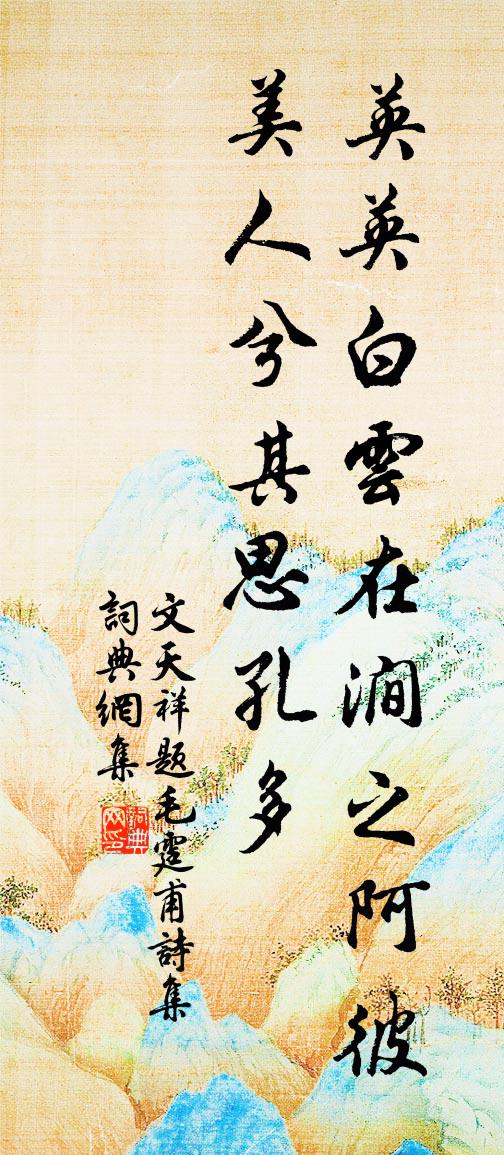 英英白雲在澗之阿彼
美人兮其思孔多
文天祥題毛霆甫詩集
詞典網集
詞典網印